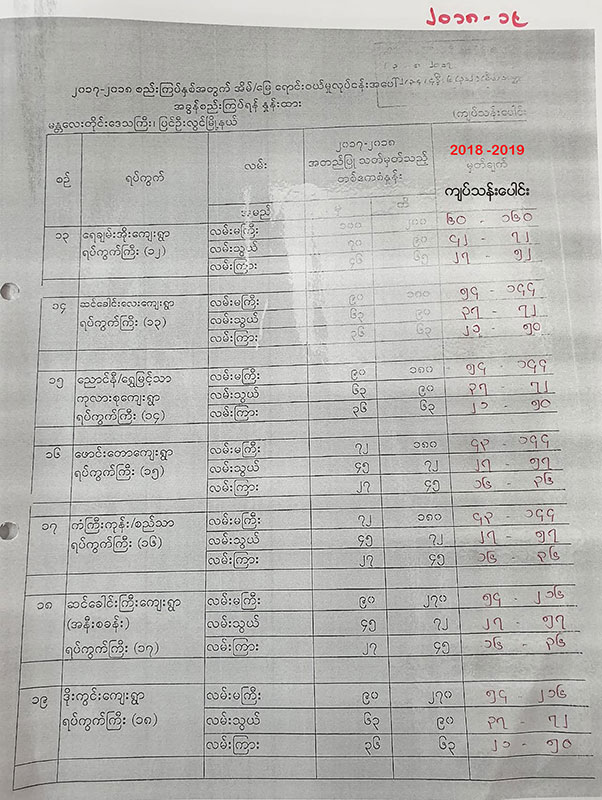 ၂၀၁၈ - ၁၉
၂၀၁၇-၂၀၁၈ စည်းကြပ်နှစ်အတွက် အိမ်/မြေ ရောင်းဝယ်မှုလုပ်ငန်းအပေါ်
အခွန်စည်းကြပ်ရန် နှုန်းထား
မန္တလေးတိုင်းဒေသကြီး၊ ပြင်ဦးလွင်မြို့နယ် (ကျပ်သန်းပေါင်း
စဉ် ရပ်ကွက် လမ်း ၂၀၁၇-၂၀၁၈ 2018 -2019
အတည်ပြု သတ်မှတ်သည့် မှတ်ချက်
တစ်ဧကစံနှုန်း ကျပ်သန်းပေါင်း
အမည် မှ ထိ
၁၃ ရေချမ်းအိုးကျေးရွာ လမ်းမကြီး ၁၀၀ ၂၀၀ ၆၀ - ၁၆၀
ရပ်ကွက်ကြီး (၁၂) လမ်းသွယ် ၇၀ ၉၀ ၄၂ - ၇၂
လမ်းကြား ၄၆ ၆၅ ၂၇ - ၅၂
၁၄ ဆင်ခေါင်းလေးကျေးရွာ လမ်းမကြီး ၉၀ ၁၈၀ ၅၄ - ၁၄၄
ရပ်ကွက်ကြီး (၁၃) လမ်းသွယ် ၆၃ ၉၀ ၃၇ - ၇၂
လမ်းကြား ၃၆ ၆၃ ၂၁ - ၅၀
၁၅ ညောင်နီ/ရွှေမြင့်သာ လမ်းမကြီး ၉၀ ၁၈၀ ၅၄ - ၁၄၄
ကုလားစုကျေးရွာ လမ်းသွယ် ၆၃ ၉၀ ၃၇ - ၇၂
ရပ်ကွက်ကြီး (၁၄) လမ်းကြား ၃၆ ၆၃ ၂၁ - ၅၀
၁၆ ဖောင်းတောကျေးရွာ လမ်းမကြီး ၇၂ ၁၈၀ ၄၃ - ၁၄၄
ရပ်ကွက်ကြီး (၁၅) လမ်းသွယ် ၄၅ ၇၂ ၂၇ - ၅၇
လမ်းကြား ၂၇ ၄၅ ၁၆ - ၃၆
၁၇ ကံကြီးကုန်း/စည်သာ လမ်းမကြီး ၇၂ ၁၈၀ ၄၃ - ၁၄၄
ရပ်ကွက်ကြီး (၁၆) လမ်းသွယ် ၄၅ ၇၂ ၂၇ - ၅၇
လမ်းကြား ၂၇ ၄၅ ၁၆ - ၃၆
၁၈ ဆင်ခေါင်းကြီးကျေးရွာ လမ်းမကြီး ၉၀ ၂၇၀ ၅၄ - ၂၁၆
(အနီးစခန်း) လမ်းသွယ် ၄၅ ၇၂ ၂၇ - ၅၇
ရပ်ကွက်ကြီး (၁၇) လမ်းကြား ၂၇ ၄၅ ၁၆ - ၃၆
၁၉ ဒိုးကွင်းကျေးရွာ လမ်းမကြီး ၉၀ ၂၇၀ ၅၄ - ၂၁၆
ရပ်ကွက်ကြီး (၁၈) လမ်းသွယ် ၆၃ ၉၀ ၃၇ - ၇၂
လမ်းကြား ၃၆ ၆၃ ၂၁ - ၅၀